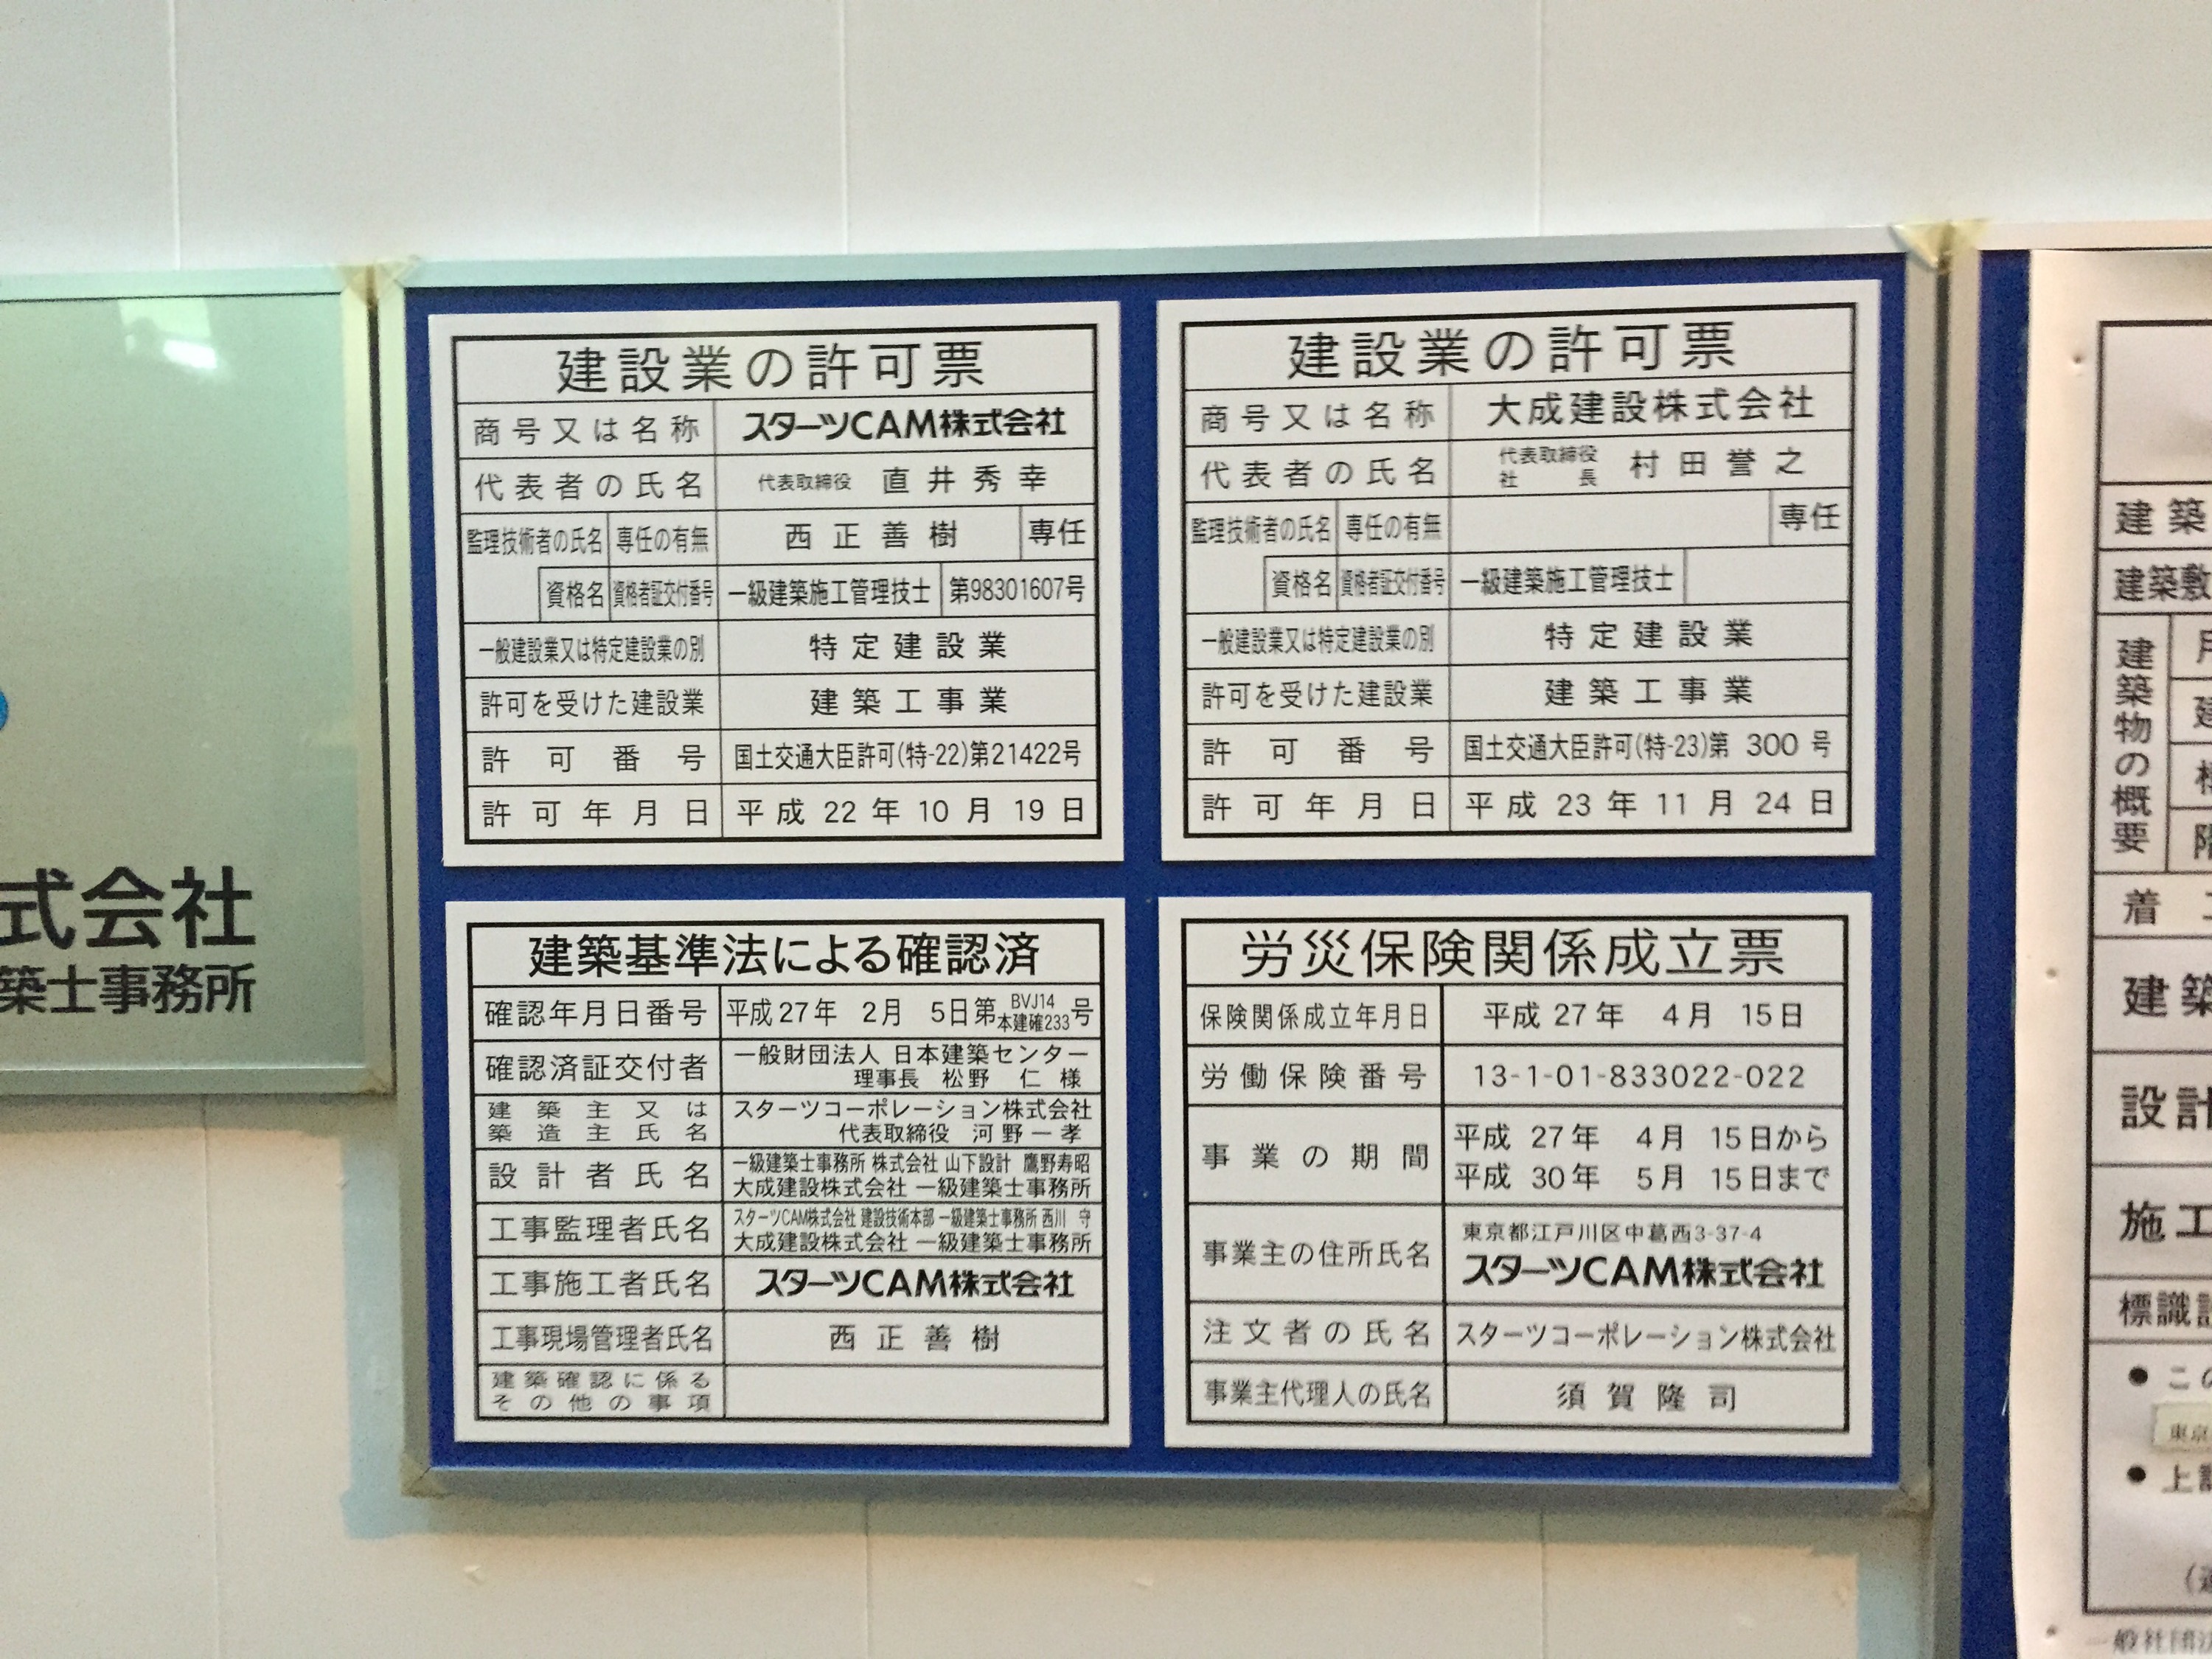 式会社
築士事務所
建設業の許可票
商号又は名称 スターツCAM株式会社
代表者の氏名 代表取締役 直井秀幸
監理技術者の氏名 専任の有無 西正善樹 専任
資格名 資格者証交付番号 一級建築施工管理技士 第98301607号
一般建設業又は特定建設業の別 特定建設業
許可を受けた建設業 建築工事業
許可番号 国土交通大臣許可(特-22)第21422号
許可年月日 平成 22 年 10 月 19 日
建設業の許可票
商号又は名称 大成建設株式会社
代表者の氏名 代表取締役 社長 村田誉之
監理技術者の氏名 専任の有無 専任
資格名 資格者証交付番号 一級建築施工管理技士
一般建設業又は特定建設業の別 特定建設業
許可を受けた建設業 建築工事業
許可番号 国土交通大臣許可(特-23)第 300 号
許可年月日 平成 23 年 11 月 24 日
建築基準法による確認済
確認年月日番号 平成27年 2月 5日第 BVJ14 本建確233 号
確認済証交付者 一般財団法人 日本建築センター
理事長 松野 仁 様
建築主又は
築造主氏名
スターツコーポレーション株式会社
代表取締役 河野一孝
設計者氏名 一級建築士事務所 株式会社 山下設計 鷹野寿昭
大成建設株式会社 一級建築士事務所
工事監理者氏名 スターツCAM株式会社 建設技術本部 一級建築士事務所 西川 守
大成建設株式会社 一級建築士事務所
工事施工者氏名 スターツCAM株式会社
工事現場管理者氏名 西正善樹
建築確認に係る
その他の事項
労災保険関係成立票
保険関係成立年月日 平成 27年 4月 15日
労働保険番号 13-1-01-833022-022
事業の期間 平成 27年 4月 15日から
平成 30年 5月 15日まで
事業主の住所氏名 東京都江戸川区中葛西3-37-4
スターツCAM株式会社
注文者の氏名 スターツコーポレーション株式会社
事業主代理人の氏名 須賀隆司
建築
建築敷
建築物の概要
着
建築
設計
施工
標識
こ
東京
上